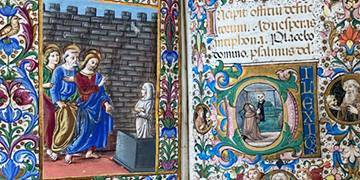 Incipit offitiū defūc
torum. Aduesperas
antiphona. Placebo
domino. psalmus
DILEXI